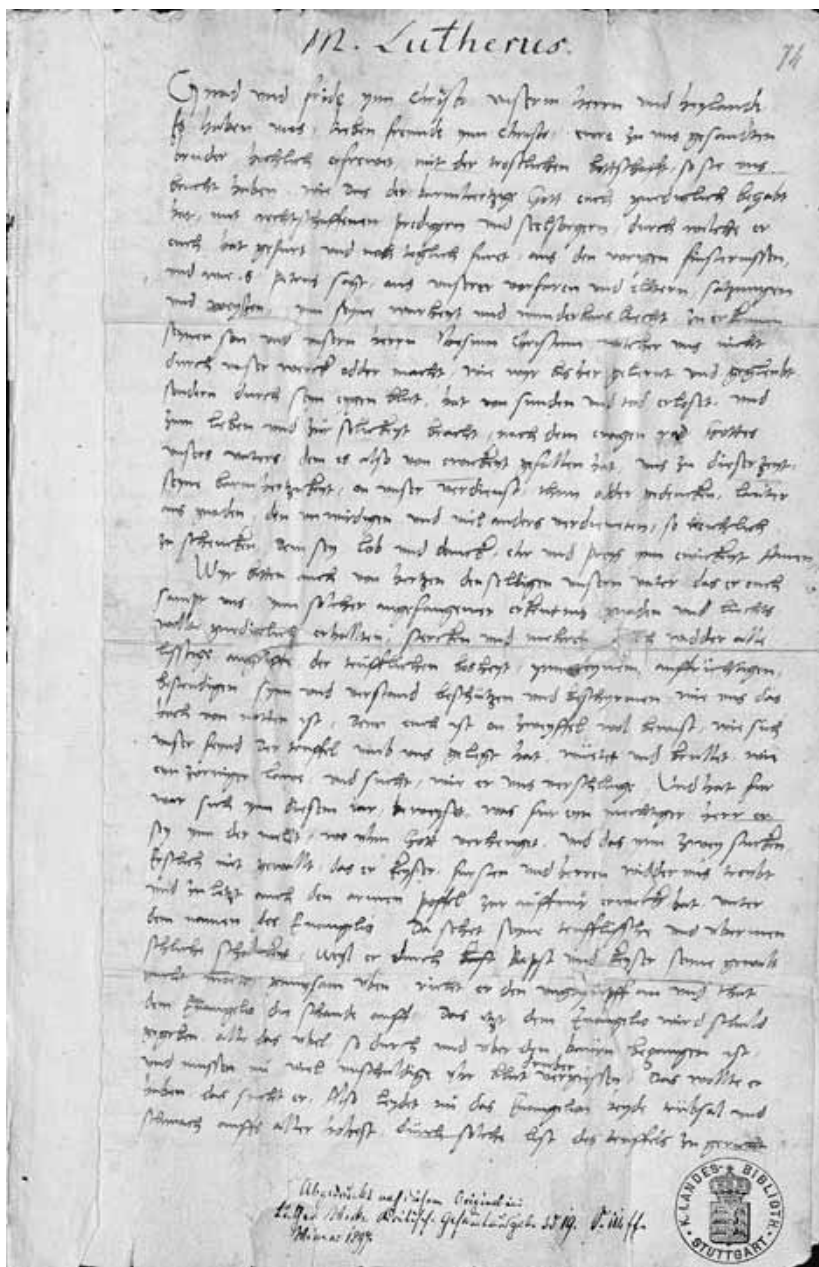 M. Lutherus.
74
Gnad und fride ynn Christo unserm herrn und heylande
Es haben uns, lieben freunde ynn Christo, ewre zu uns gesandten
bruder hochlich erfrewet, mit der trostlichen bottschafft, so sie uns
bracht haben, wie das der barmhertzige Gott euch gnediglich begabt
hat, mit rechtschaffenen predigern und seelsorgern, durch wilche er
euch hat gefurt und noch teglich furet, aus den vorigen finsternissen,
und wie S Petrus sagt, aus unserer vorfaren und eltern, satzungen
und weysen, ynn seyne warheyt und wunderbars liecht, zu erkennen
seynen son und unsern herrn Jhesum Christum wilcher uns nicht
durch unser werck odder macht, wie wyr bis her gelernt und gegleubt
sondern durch seyn eygen blut, hat von sunden und tod erloset, und
zum leben und zur selickeyt bracht, nach dem ewigen Gottes
unsers vaters, dem es also von ewickeyt gefallen hat, uns zu dieser zeyt,
seyne barmhertzickeyt, on unser verdienst, thun odder gedencken, lauter
aus gnaden, den unwirdigen und viel anders verdieneten, so reichlich
zu schencken, Dem sey lob und danck, ehr und preys ynn ewickeyt Amen
Wyr bitten auch von hertzen denselbigen unsern vater das er euch
sampt uns ynn solcher angefangener erkentnis gnaden und liechts
wollte gnediglich erhallten, stercken und mehren widder alle
listige der teufflischen bosheyt, auffrichtigen,
bestendigen synn und verstand beschutzen und beschyrmen wie uns das
hoch von notten ist, Denn euch ist on zweyffel wol bewust, wie sich
unser feynd der teuffel umb uns gelegt hat, wuetet und brullet, wie
eyn zorniger lewe, und sucht, wie er uns verschlinge, Und hat fur
war sich ynn diesem iar beweyset, was fur eyn mechtiger herr er
sey ynn der wellt, wo yhm Gott verhenget, und das ynn zwey stucken
Erstlich mit gewallt, das er keyser, fursten und herren widder uns treybt
und zu letzt auch den armen poffel zur auffrur erweckt hat, unter
dem namen des Euangelio Da sehet seyne teufflissche und ubermen
schliche, Weyl er durch Bapst und keyser seine gewallt
nicht gnugsam uben, richt er den an und thut
dem Euangelio die schande auff, Das itzt dem Euangelio wird schuld
gegeben, alle das ubel so durch und uber den bauren begangen ist,
und mussen nu viel unschuldige yhr blut druber vergiessen, Das wollte er
haben, das sucht er, Also leydet nu das Euangelion beyde trubsal und
schmach auffs aller hohest, durch solche list des teuffels zu gericht
Abgedruckt nach diesem Original in
Luther Werke Kritische Gesamtausgabe Bd 19.
Weimar 1897
K. LANDES-BIBLIOTH. STUTTGART